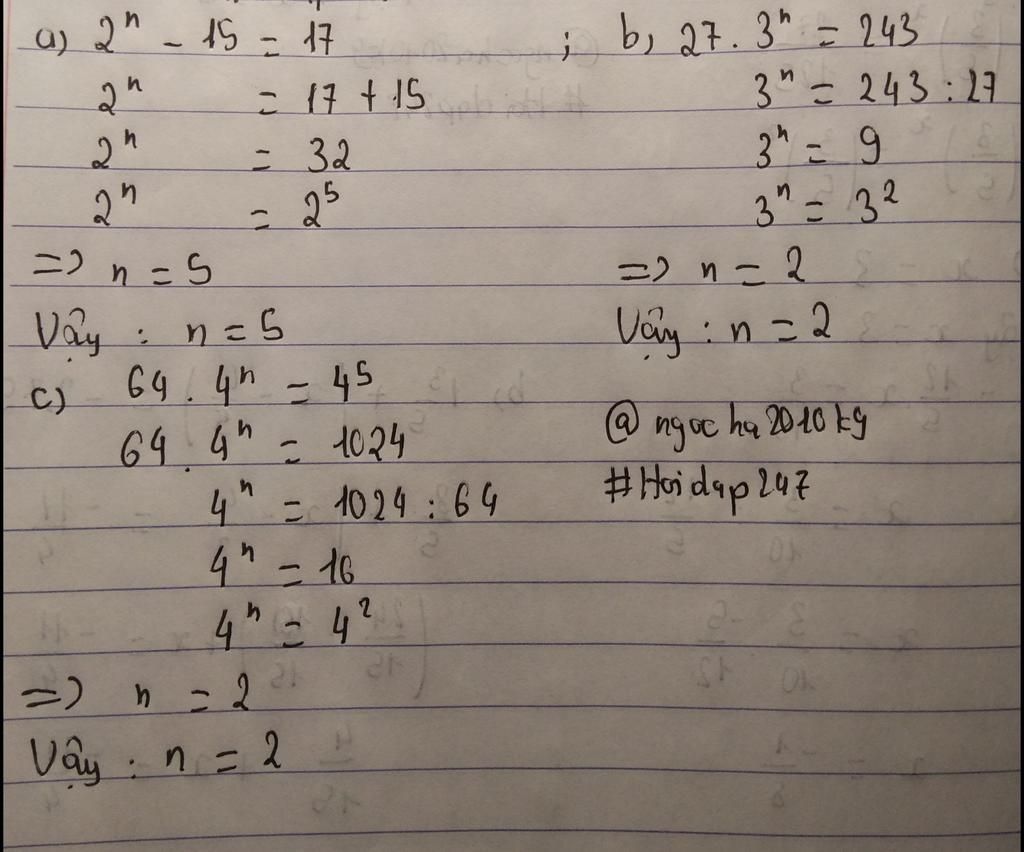 a) 2ⁿ - 15 = 17 ; b, 27 . 3ⁿ = 243
2ⁿ = 17 + 15
3ⁿ = 243 : 27
2ⁿ = 32
3ⁿ = 9
2ⁿ = 2⁵
3ⁿ = 3²
=> n = 5
=> n = 2
Vậy : n = 5
Vậy : n = 2
c) 64 . 4ⁿ = 4⁵
64 . 4ⁿ = 1024
4ⁿ = 1024 : 64
4ⁿ = 16
4ⁿ = 4²
=> n = 2
Vậy : n = 2
@ ngoc ha 2010 kg
#Hoidap247